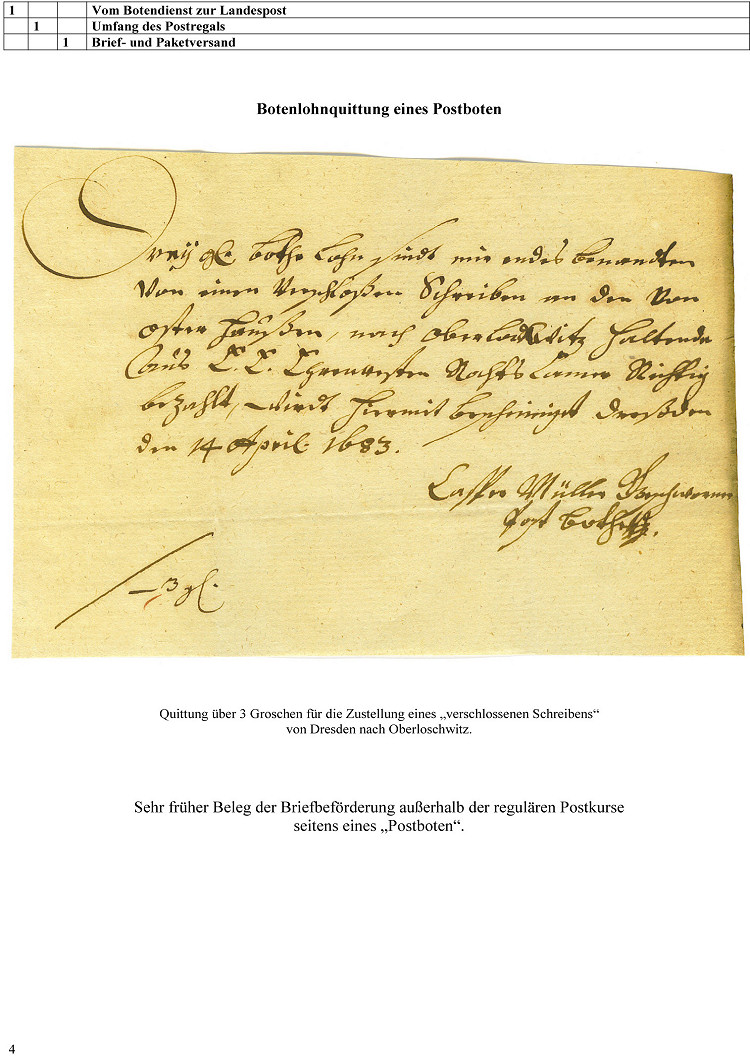 1 Vom Botendienst zur Landespost
1 Umfang des Postregals
1 Brief- und Paketversand
Botenlohnquittung eines Postboten
Dreÿ gl. bothe Lohn sindt mir endes benandten
Von einen Verschloßen Schreiben an den Von
oster haußen, nach Oberloschwitz haltende
aus E. E. Ehrenvesten Rahts Camer Richtig
bezahlt, wirdt hiermit bescheiniget Dreßden
den 14 April. 1683.
Casper Müller
Post bothe
– 3 gl.
Quittung über 3 Groschen für die Zustellung eines „verschlossenen Schreibens“
von Dresden nach Oberloschwitz.
Sehr früher Beleg der Briefbeförderung außerhalb der regulären Postkurse
seitens eines „Postboten“.
4